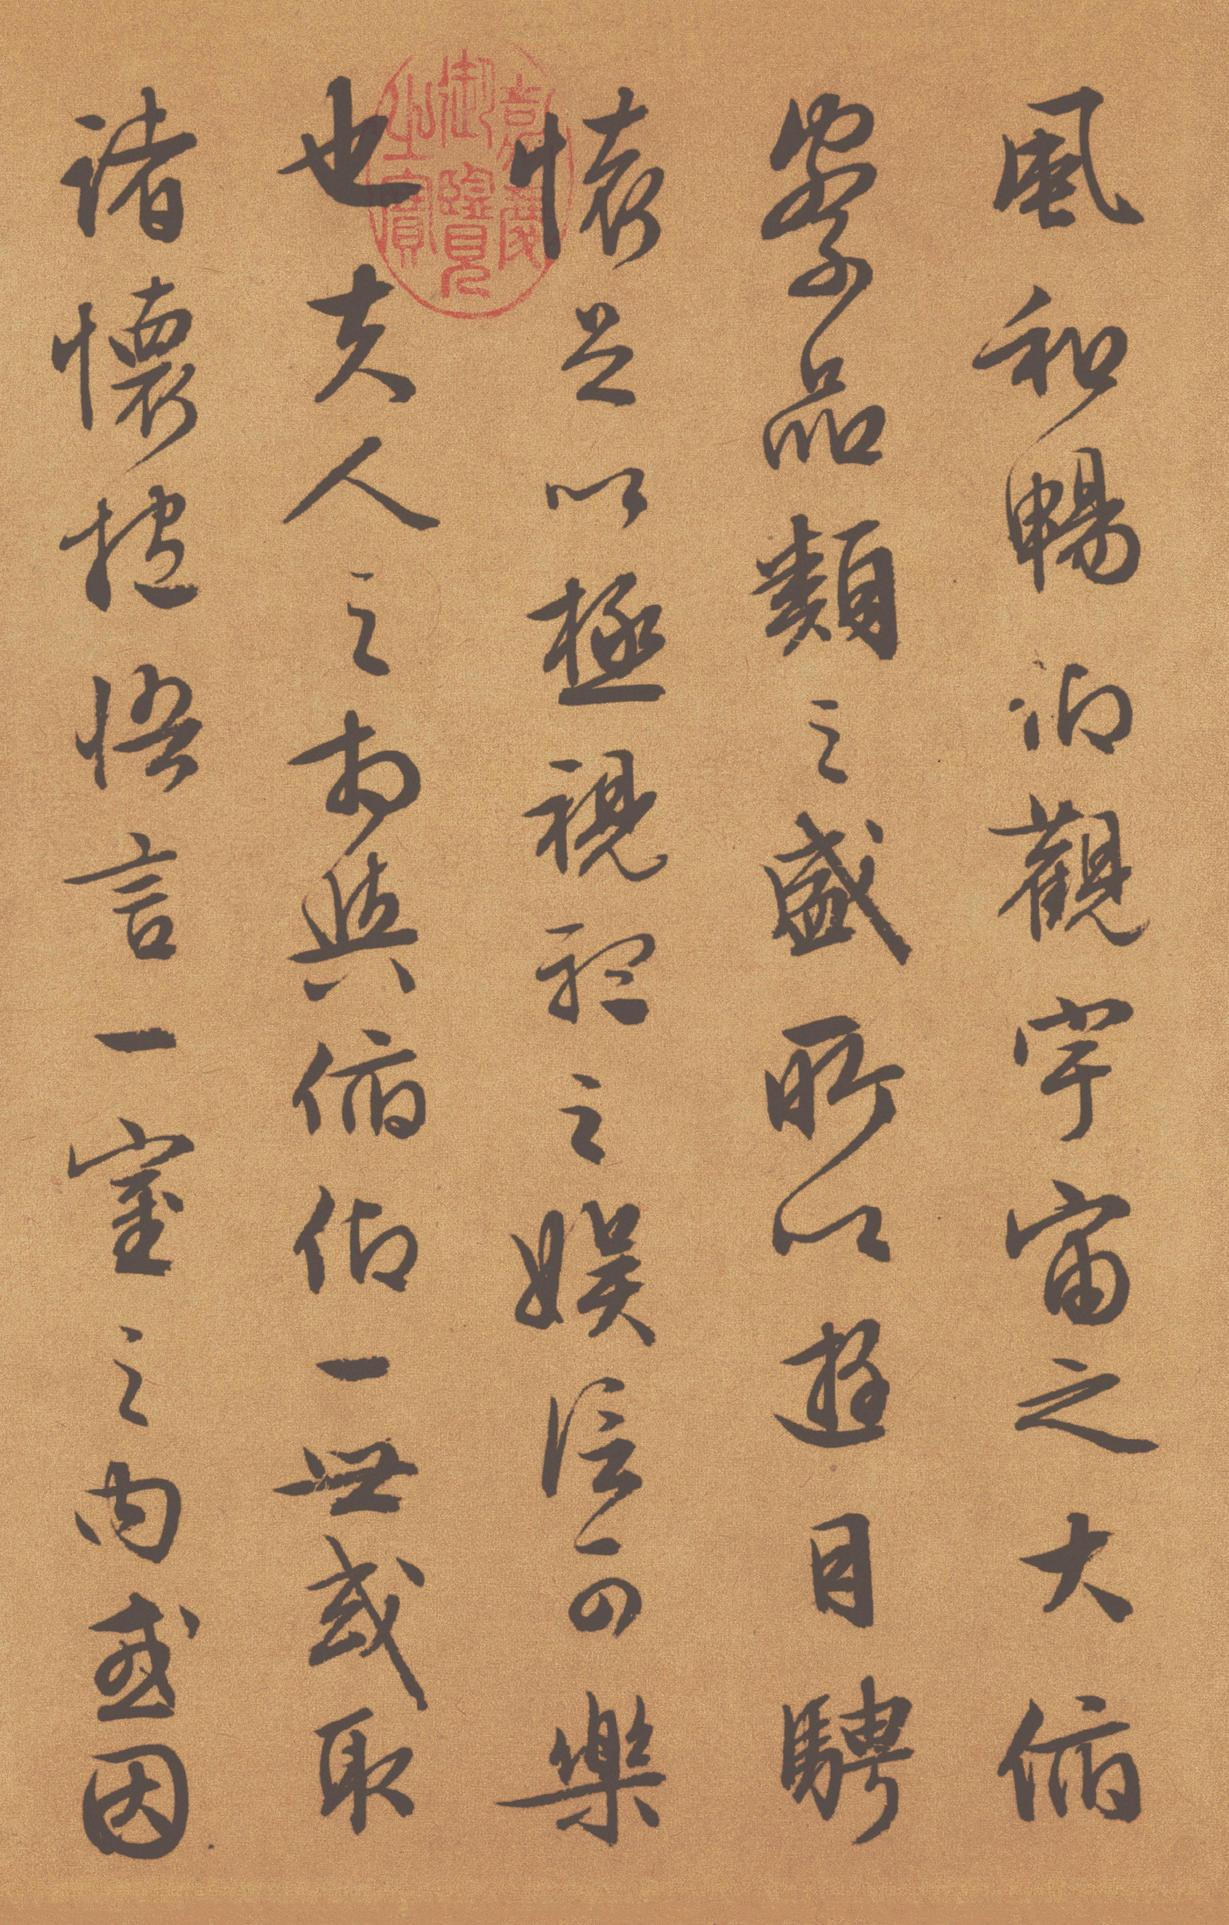 風和暢仰觀宇宙之大俯
察品類之盛所以遊目騁
懷足以極視聽之娛信可樂
也夫人之相與俯仰一世或取
諸懷抱悟言一室之內或因
嘉慶
御覽
之寶